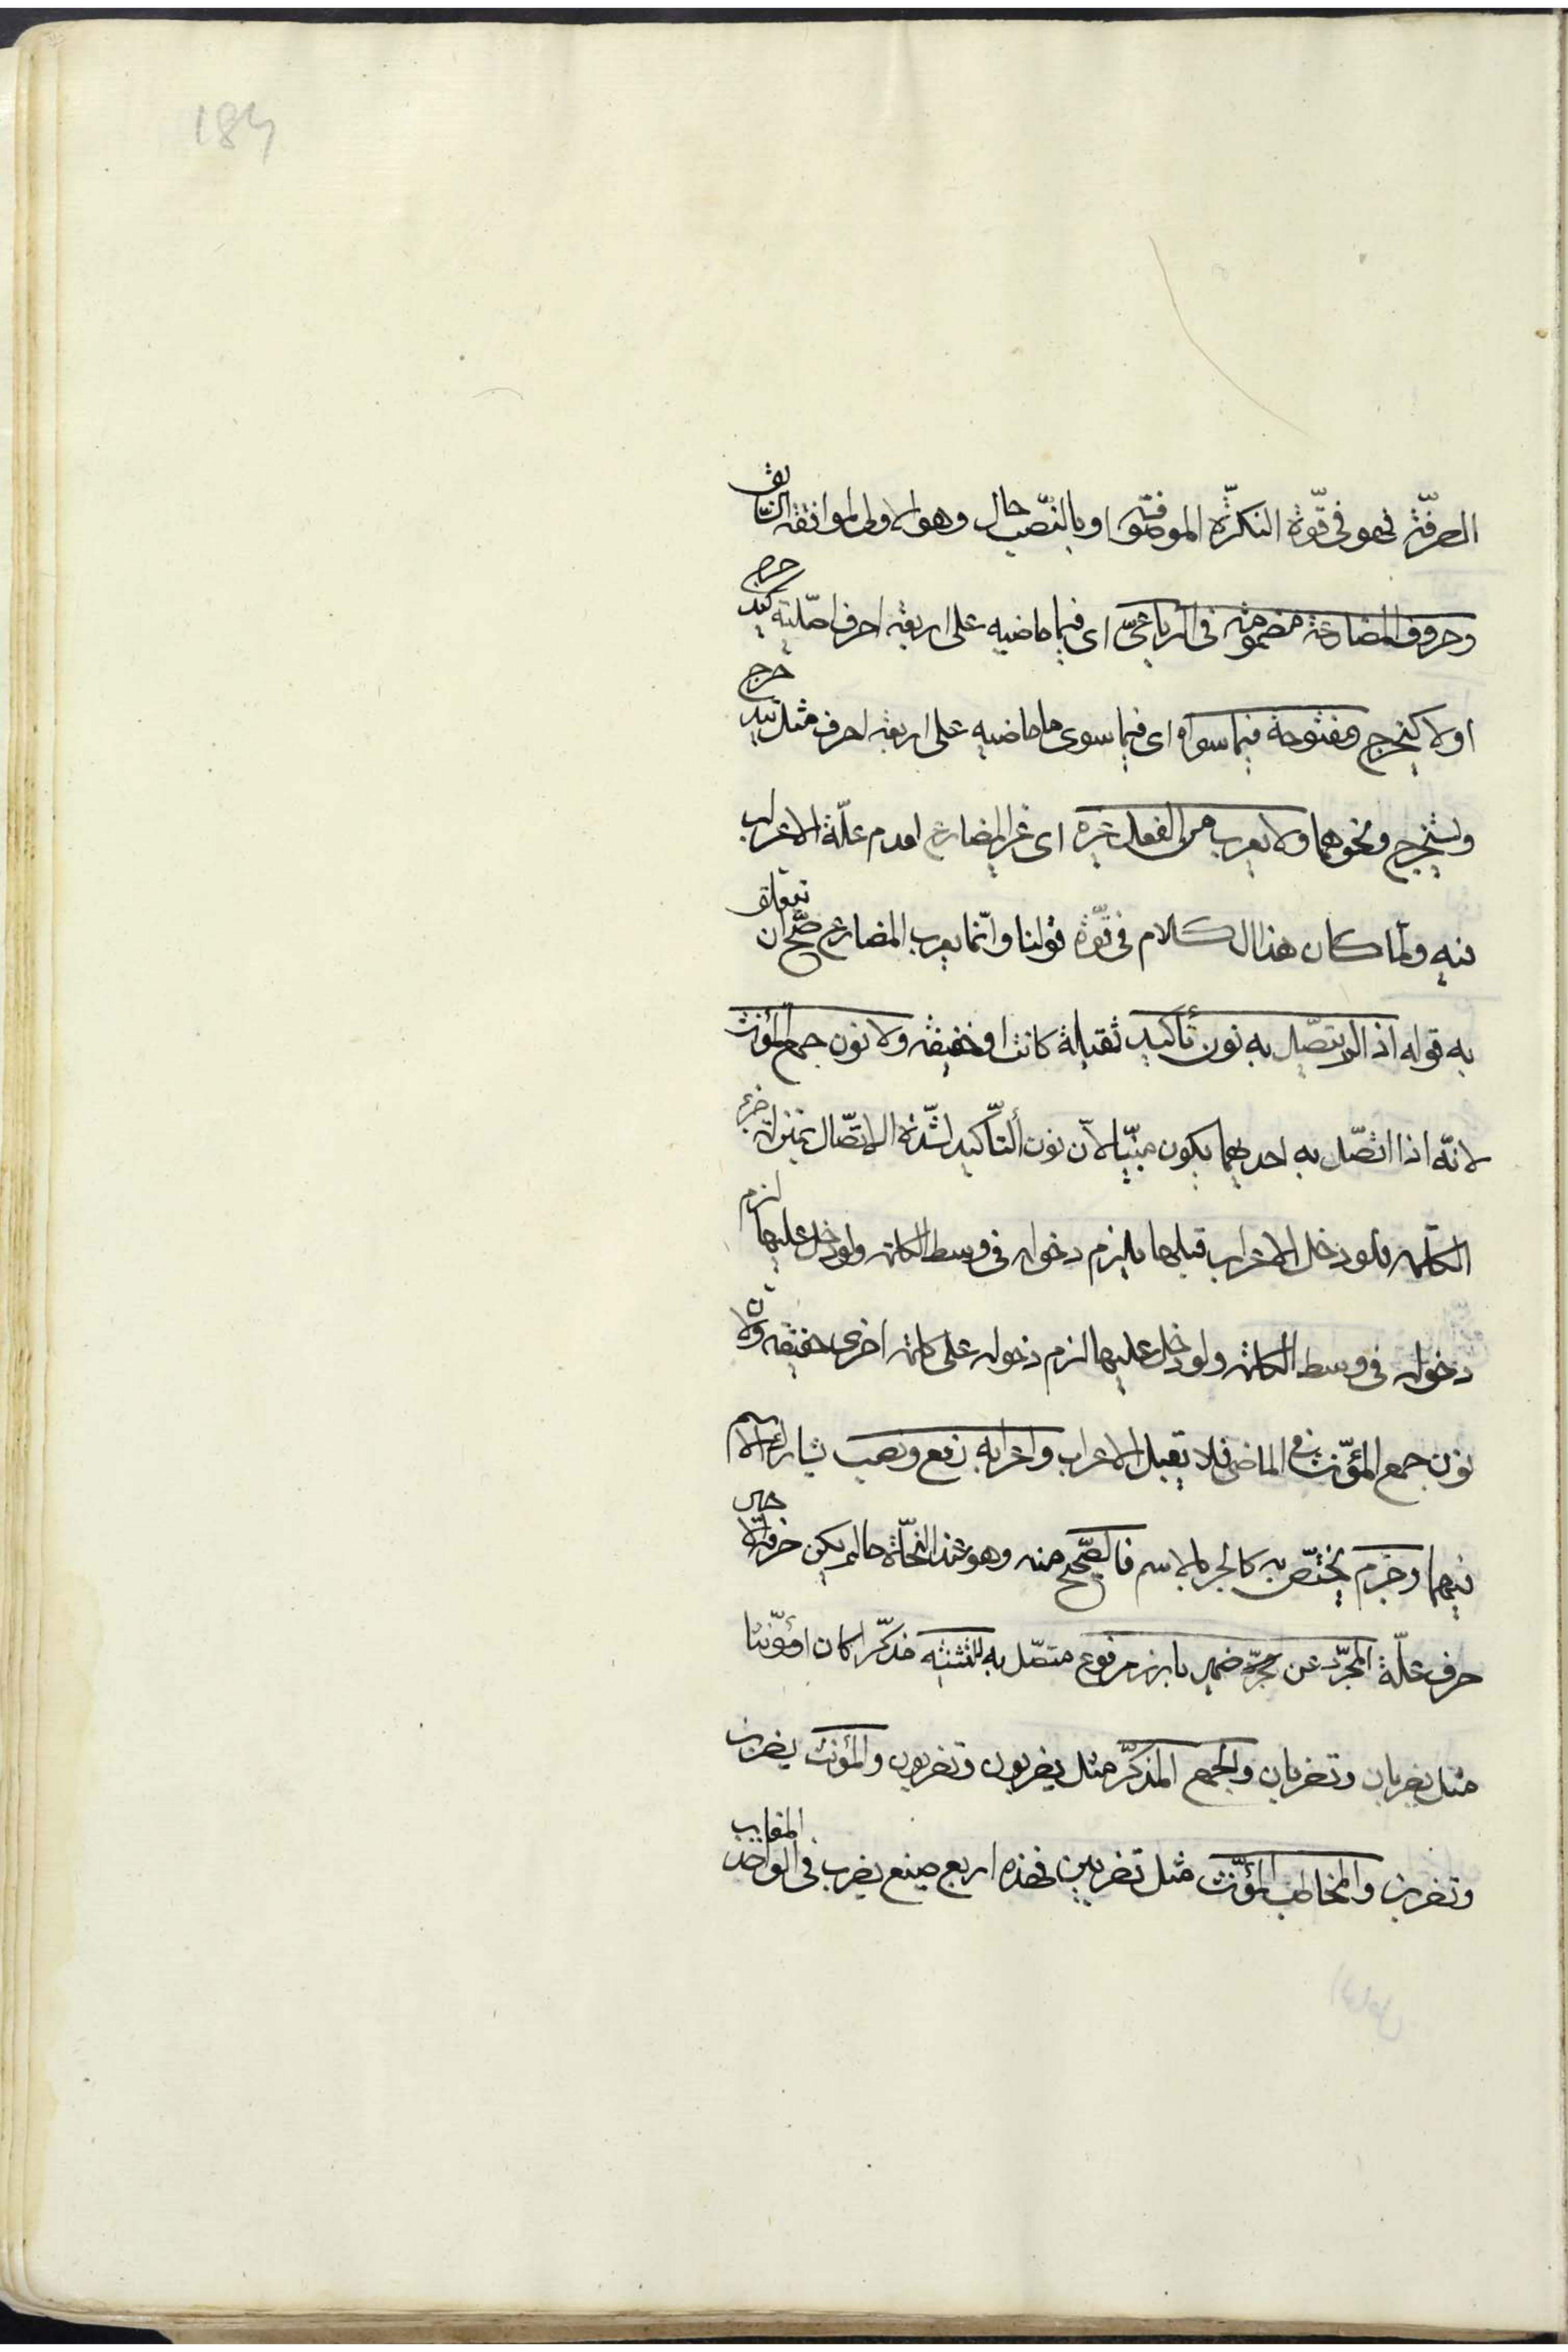 184
الصرفة فهو فى قوّة النكرة الموصوفة او بالنصب حال وهو الاولى لموافقه السّابق
وحروف المضارعة مضمومة فى الرباعىّ اى فيما ماضيه على اربعة احرف اصليّة كيدحرج
اولا كيخرج ومفتوحة فيما سواه اى فيما سوى ما ماضيه على اربعة احرف مثل يتدحرج
ويستخرج ونحوهما ولا يعرب من الفعل غيره اى غير المضارع لعدم علّة الاعراب
فيه ولمّا كان هذا الكلام فى قوّة قولنا وانّما يعرب المضارع صحّ ان يتعلق
به قوله اذا لم يتّصل به نون تأكيد ثقيلة كانت او خفيفة ولا نون جمع المؤنث
لانّه اذا اتّصل به احديهما يكون مبنيّا لانّ نون التّأكيد لشدّة الاتّصال بمنزلة جزء
الكلمة فلو دخل الاعراب قبلها يلزم دخوله فى وسط الكلمة ولو دخل عليها لزم
دخوله فى وسط الكلمة ولو دخل عليها لزم دخوله على كلمة اخرى حقيقة ولان
نون جمع المؤنّث فى الماضى فلا يقبل الاعراب واعرابه رفع ونصب يشارك الاسم
فيهما وجزم يختصّ به كالجر بالاسم فالصّحيح منه وهو عند النّحاة ما لم يكن حرفه الاخير
حرف علّة المجرّد عن ضمير بارز مرفوع متّصل به للتثنية مذكّرا كان او مؤنّثا
مثل يضربان وتضربان والجمع المذكّر مثل يضربون وتضربون والمؤنث يضربن
وتضربن والمخاطب المؤنّث مثل تضربين فهذه اربع صيغ يضرب فى الواحد الغايب